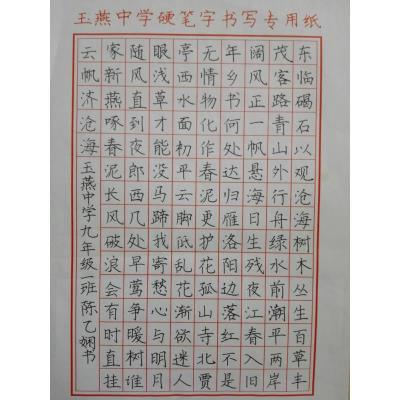 玉燕中学硬笔字书写专用纸
东临碣石以观沧海树木丛生百草丰
茂客路青山外行舟绿水前潮平两岸
阔风正一帆悬海日生残夜江春入旧
年乡书何处达归雁洛阳边落红不是
无情物化作春泥更护花孤山寺北贾
亭西水面初平云脚低乱花渐欲迷人
眼浅草才能没马蹄我寄愁心与明月
随风直到夜郎西几处早莺争暖树谁
家新燕啄春泥长风破浪会有时直挂
云帆济沧海玉燕中学九年级一班陈乙娴书